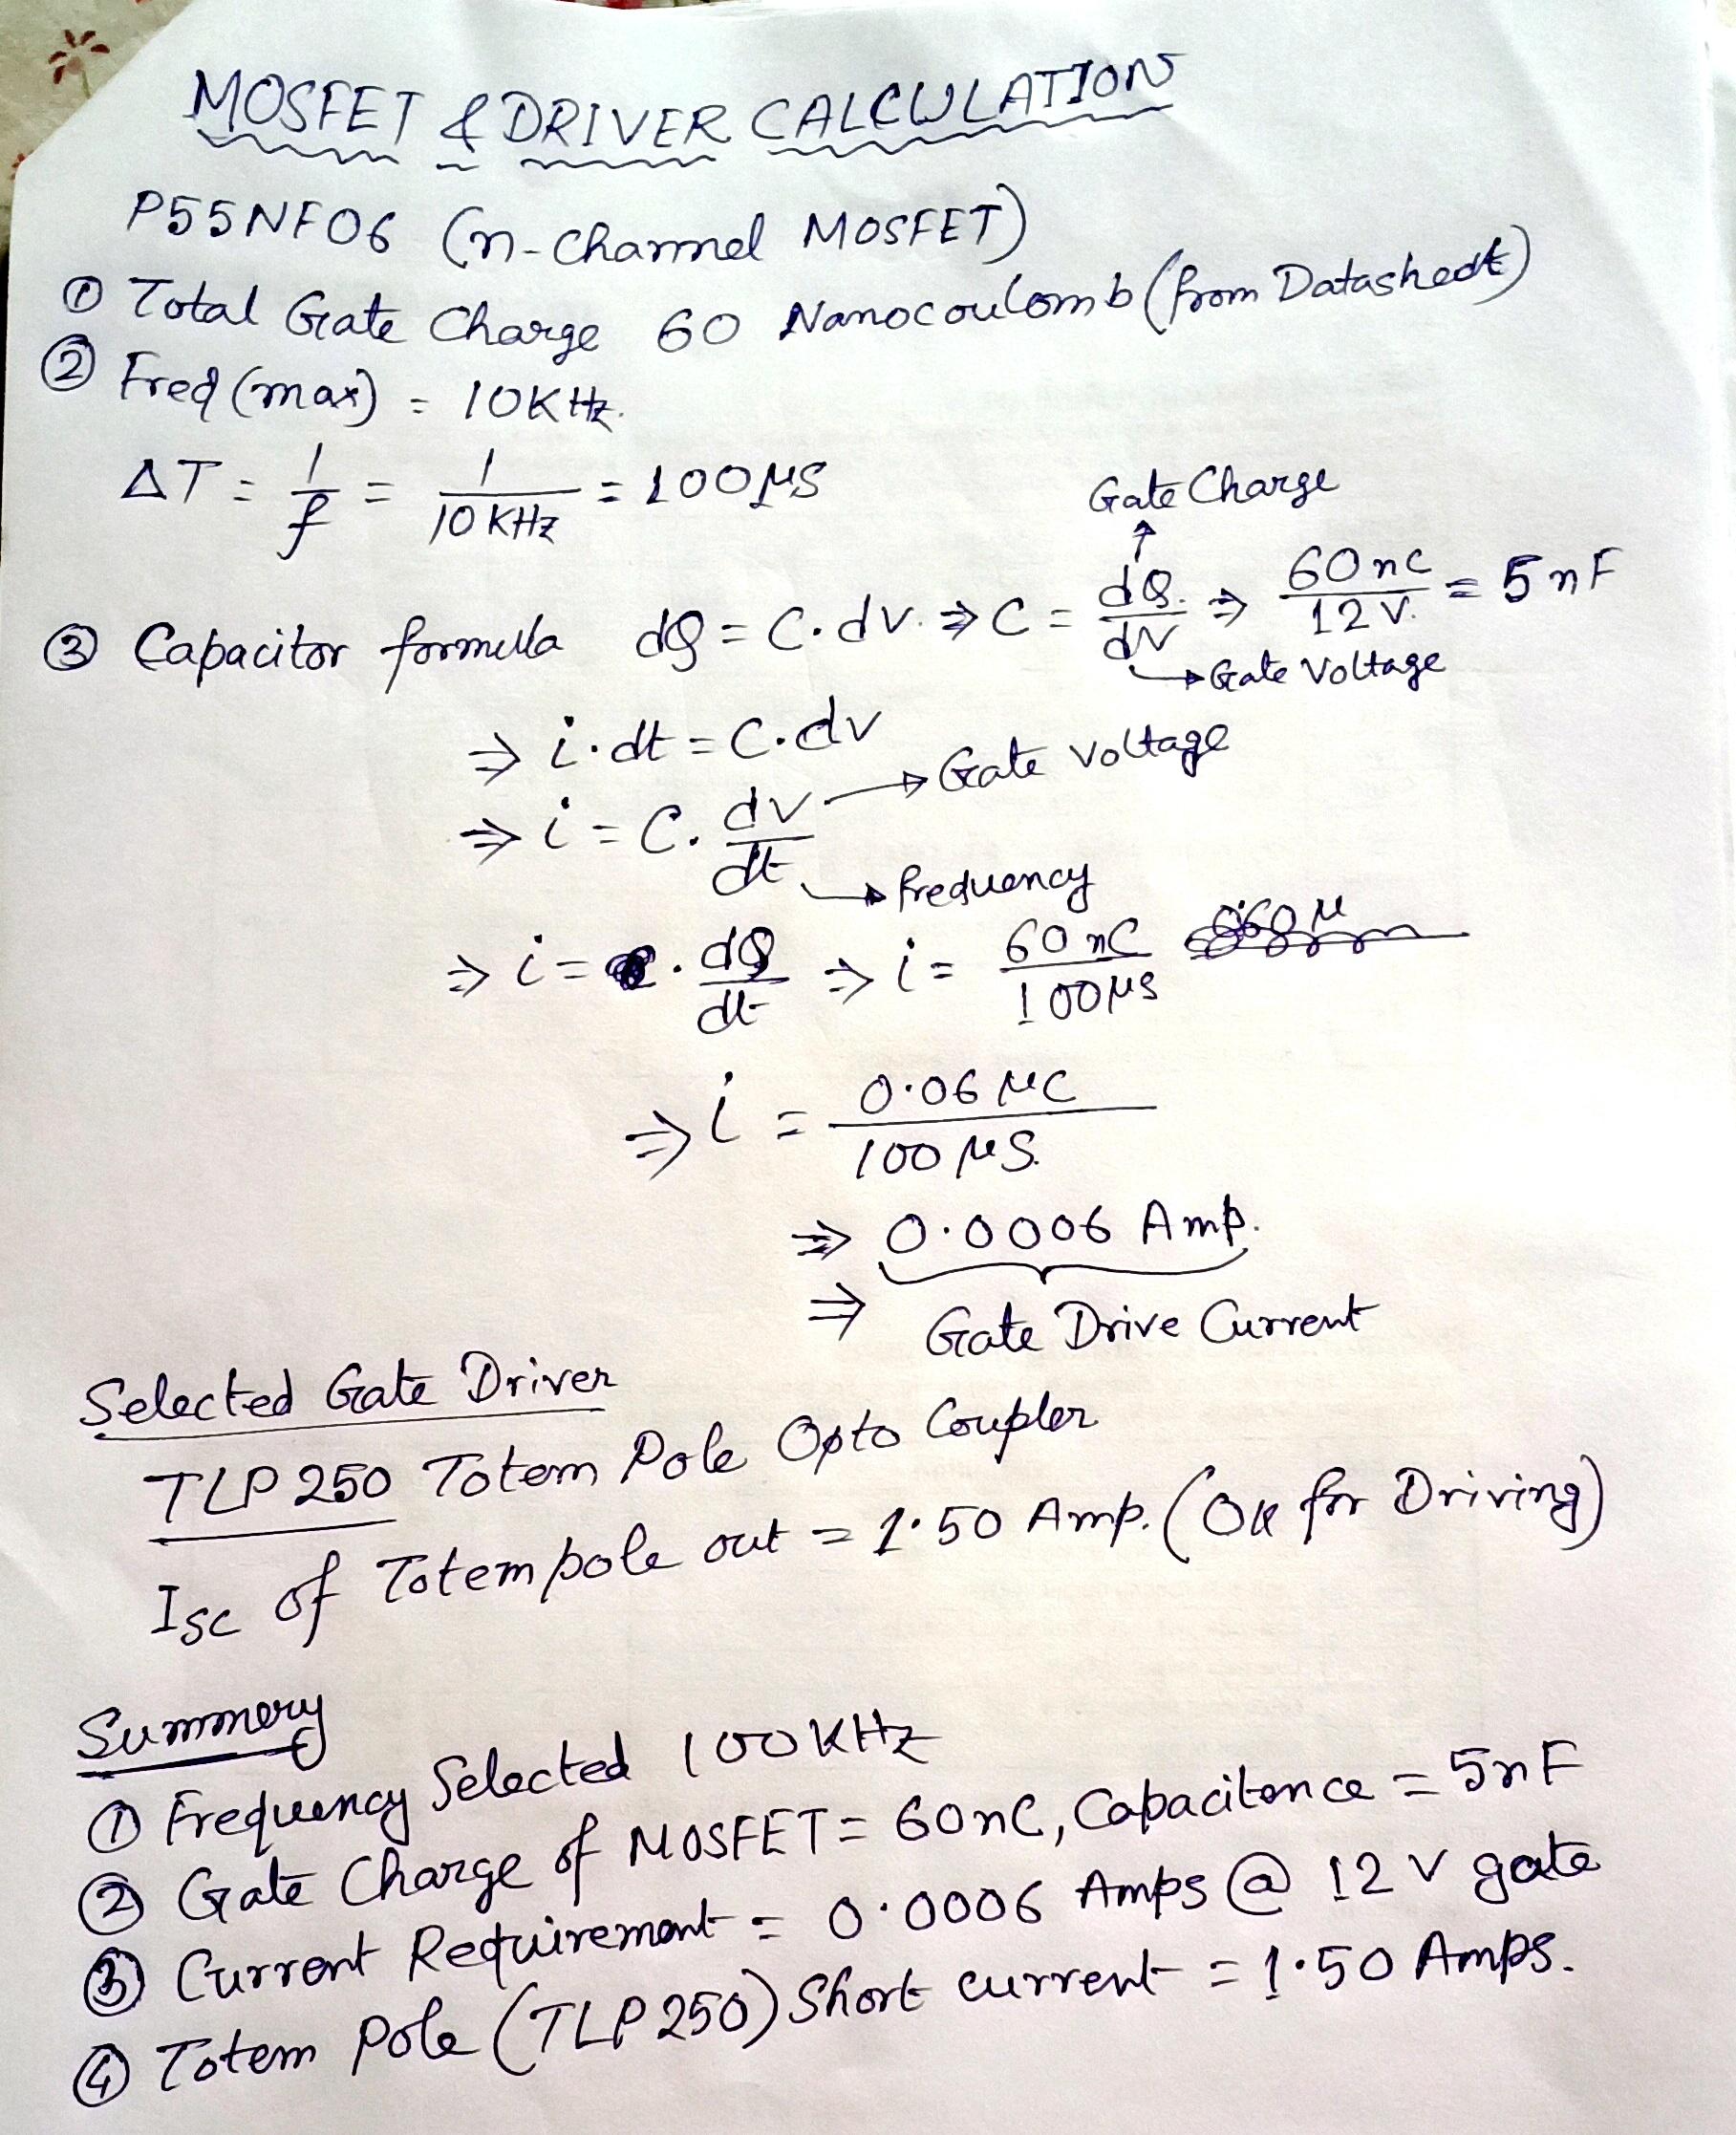 MOSFET & DRIVER CALCULATION
P55NF06 (n-Channel MOSFET)
① Total Gate Charge 60 Nanocoulomb (from Datasheet)
② Freq (max) = 10KHz.
ΔT = 1/f = 1/10 KHz = 100μS
Gate Charge
③ Capacitor formula dQ = C.dv. ⇒ C = dQ/dV ⇒ 60nC/12V. = 5nF
Gate Voltage
⇒ i.dt = C.dv
Gate Voltage
⇒ i = C. dv/dt
frequency
⇒ i = . dQ/dt ⇒ i = 60nC/100μs
⇒ i = 0.06 μC/100 μS.
⇒ 0.0006 Amp.
⇒ Gate Drive Current
Selected Gate Driver
TLP250 Totem Pole Opto Coupler
Isc of Totempole out = 1.50 Amp. (OK for Driving)
Summery
① Frequency Selected 100KHz
② Gate Charge of MOSFET = 60nC, Capacitence = 5nF
③ Current Requirement = 0.0006 Amps @ 12V gate
④ Totem Pole (TLP250) Short current = 1.50 Amps.